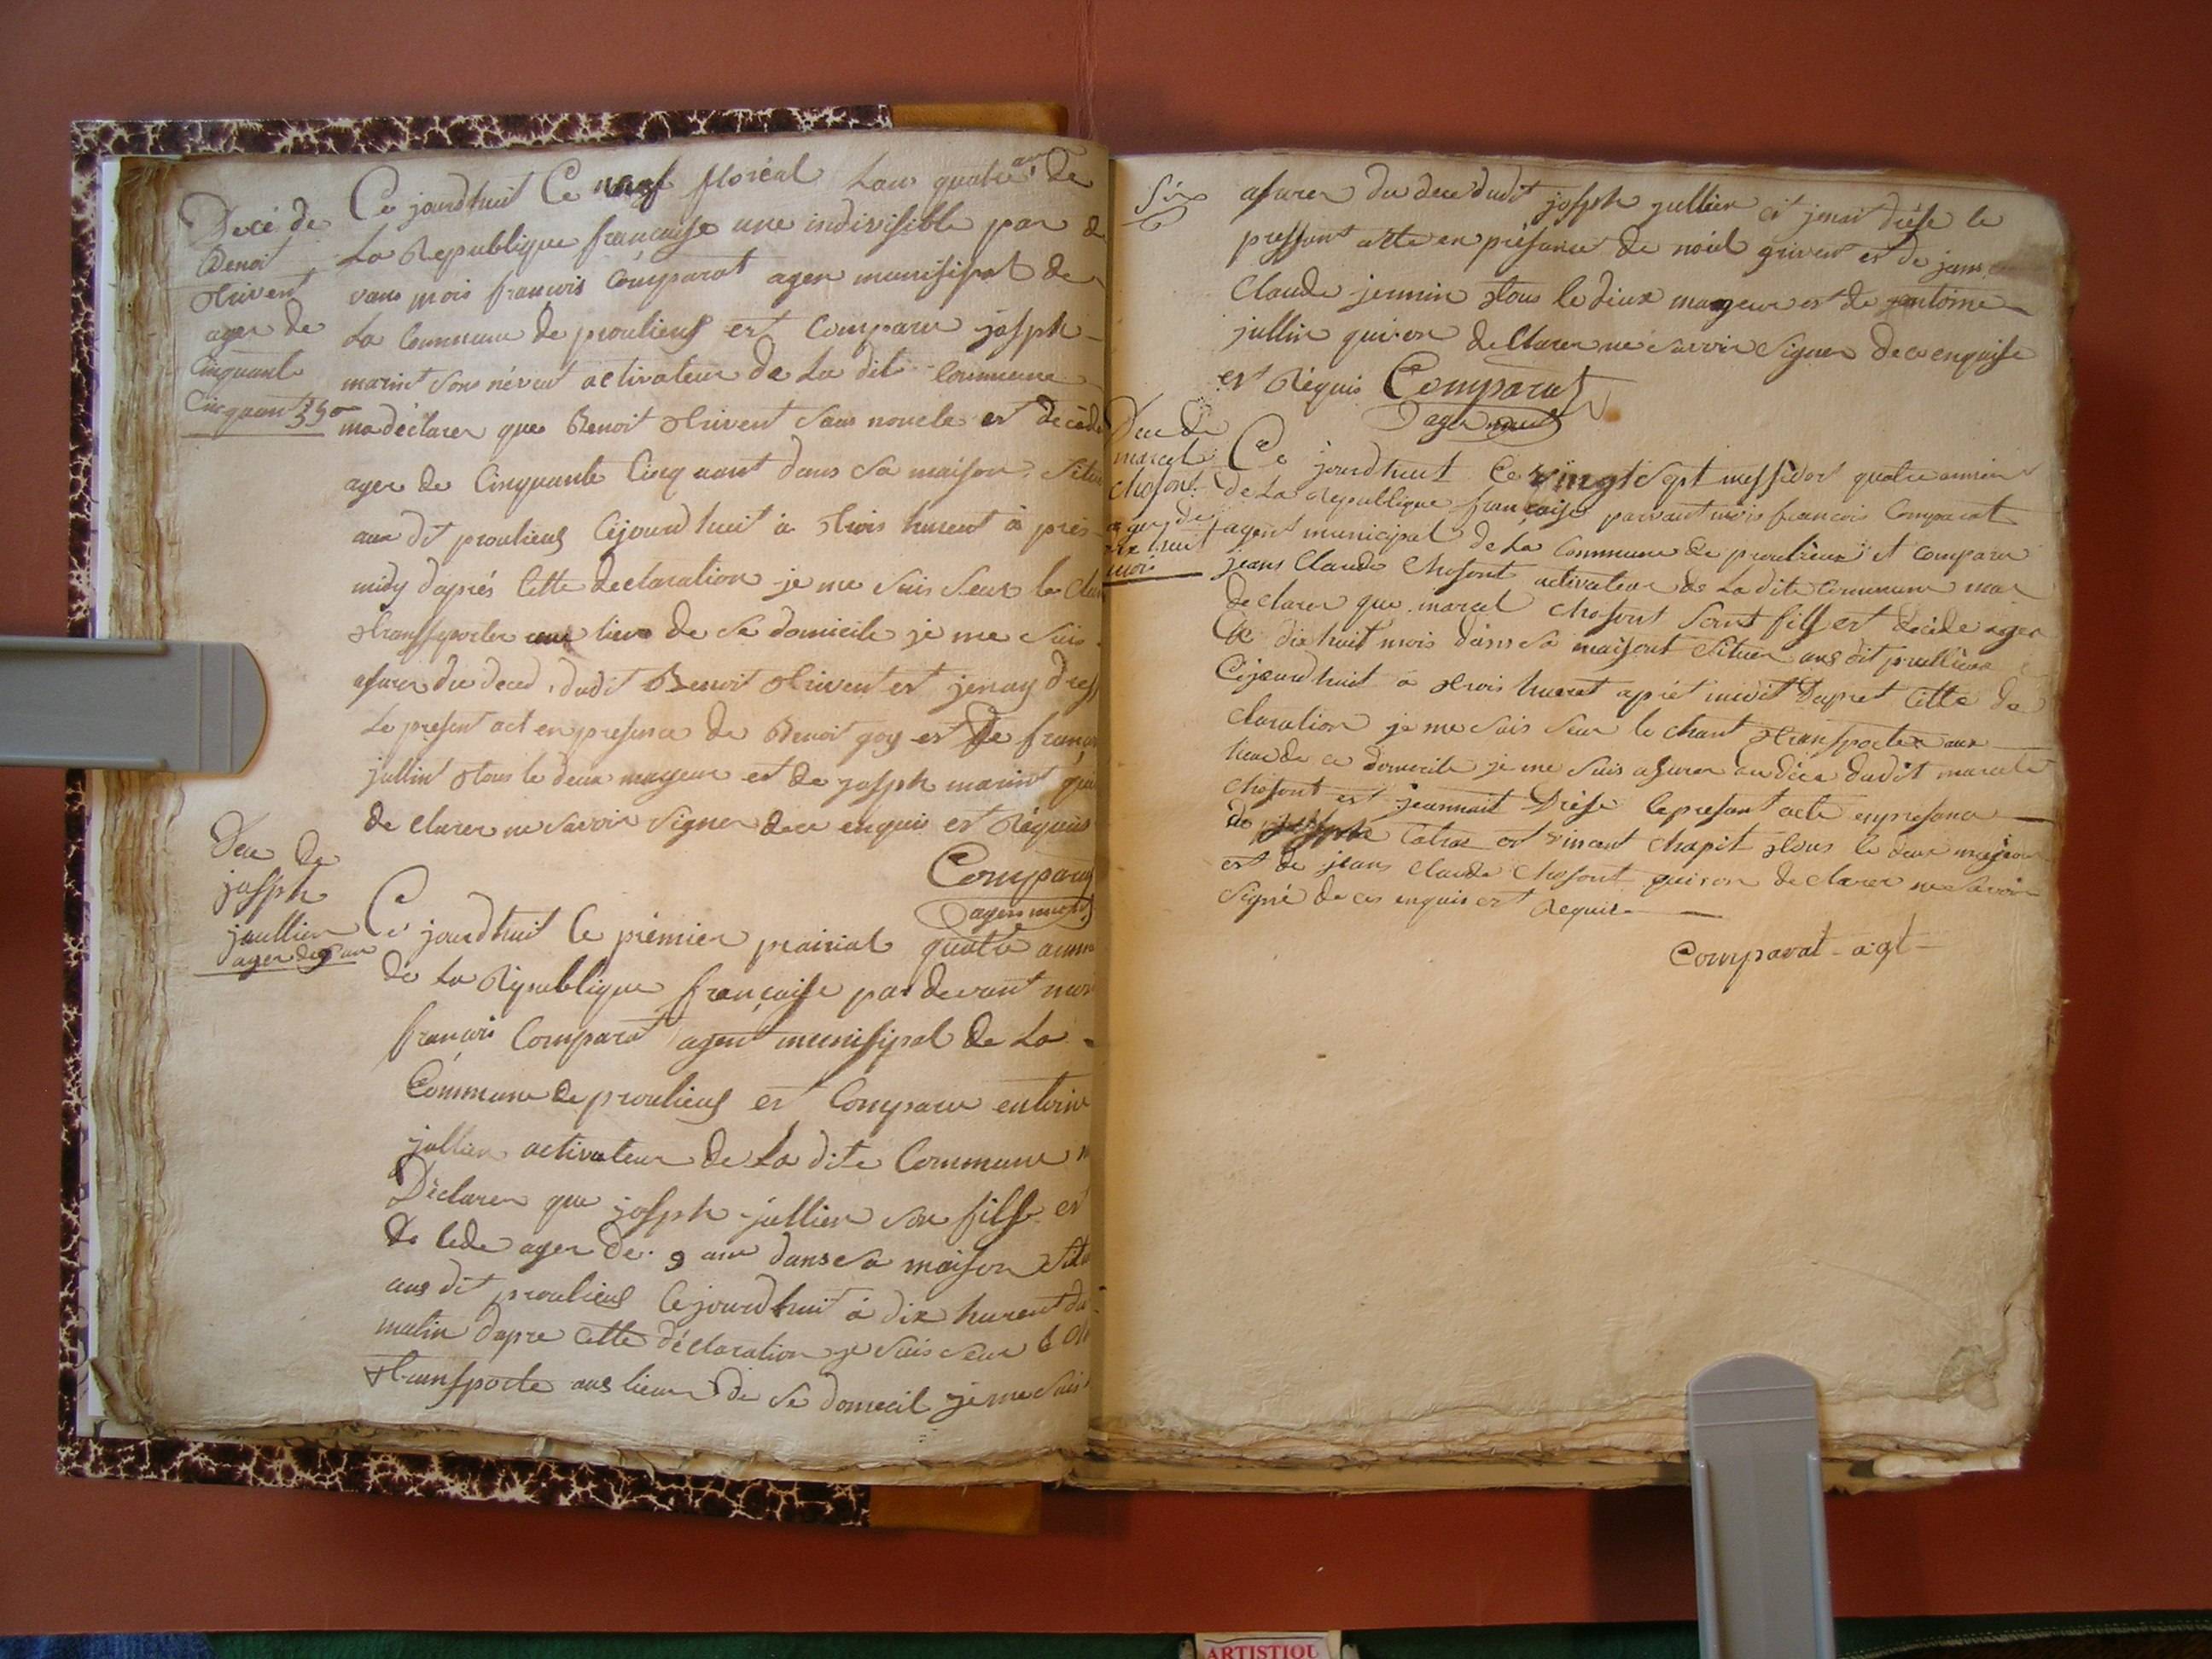 Decé de
Benoi
trivent
ager de
Cinquante
Cinq uant 55
Ce jourdhuit Ce neuf floréal Lan quatre de
La Republique francaise une indivisible par de
vans mois francois Comparat agen munisipal de
La Commune de proulieus est Comparu josph
marint sons néveut activateur de La dit Commune
ma déclarer que Benoit trivent sans noncle est decédé
ager de Cinquante Cinq uant dans sa maison situe
aux dit proulieus Cejourdhuit à trois hurent à près
midy daprés Cette declaration je me suis seur le Cham
transporter aux lieux de se domicile je me suis
asurer du deced dudit Benoit trivent est jenay dress
Le present act en presence de Benoit goy est de françoi
jullint tous le deux mageur est de josph marint qui
de clarer ne savoir signer dece enquis est Réquis
Comparat
agen munisi
Dece de
josph
jeullien
ager de 9 an
Ce jourdhuit Ce prémier prairial quatre anné
de La République française par devant mois
francois Comparat agent munisipal de La
Commune de proulieus est Comparu entoine
jullien activateur de La dite Commune m
Déclarer que josph jullien son fils est
de cede ager de 9 ans dans sa maison situ
aus dit proulieus Cejourdhuit à dix hurent du
matin dapre Cette déclaration je suis seur le Cha
transporte aus lieux de se domecil je me suis
asurer du dece dudit josph jullien est jenai drése le
pressant acte en présance de noél grivent et de jans
Claude jennin tous le dieux mageur est de antoine
jullin quiron de Clarer ne savoir signer de ce enquise
est Réquis Comparat
agen muni
Dece de
marcel
Chosont
ager de
dix huit
mois
Ce jourdhuit Ce vingt sept messidor quatre année
de La république française parvant mois francois Comparat
agent municipal de La Commune de proulieux et Comparu
jeans Claude Chosont activateur de La dite Commune mar
declarer que marcel Chosont sont fils est décéde ager
de dix huit mois dans sa maisont situer aus dit proullieux
Cejourdhuit a trois hueret apriet medit Dapret Cette de
claration je me suis seur le chant transporter aux
lieu de ce domicile je me suis asurer du déce dudit marcel
Chosont est jeannait Drése le presant acte en presance
de josphe Catras et vincent Chapit tous le deux mageur
est de jeans Claude Chosont quiron declarer ne savoir
signé de ces enquis est Requis
Comparat agt
ARTISTIQU